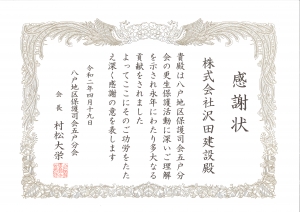 感謝状
株式会社沢田建設殿
貴殿は八戸地区保護司会五戸分
会の更生保護活動に深いご理解
を示され永年にわたり多大なる
貢献をされました
よってここにそのご功労をたた
え深く感謝の意を表します
令和二年四月十九日
八戸地区保護司会五戸分会
会長 村松大栄